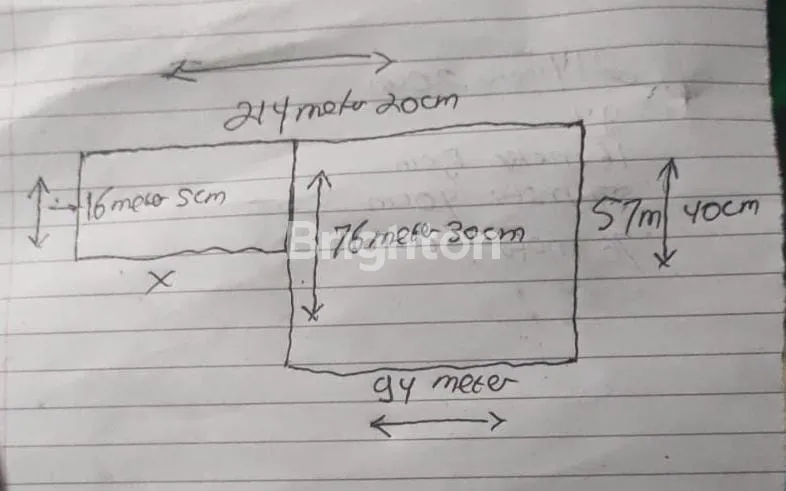 214 meter 20cm
16 meter 5cm
76 meter 30cm
57m 40cm
X
94 meter
Brighton